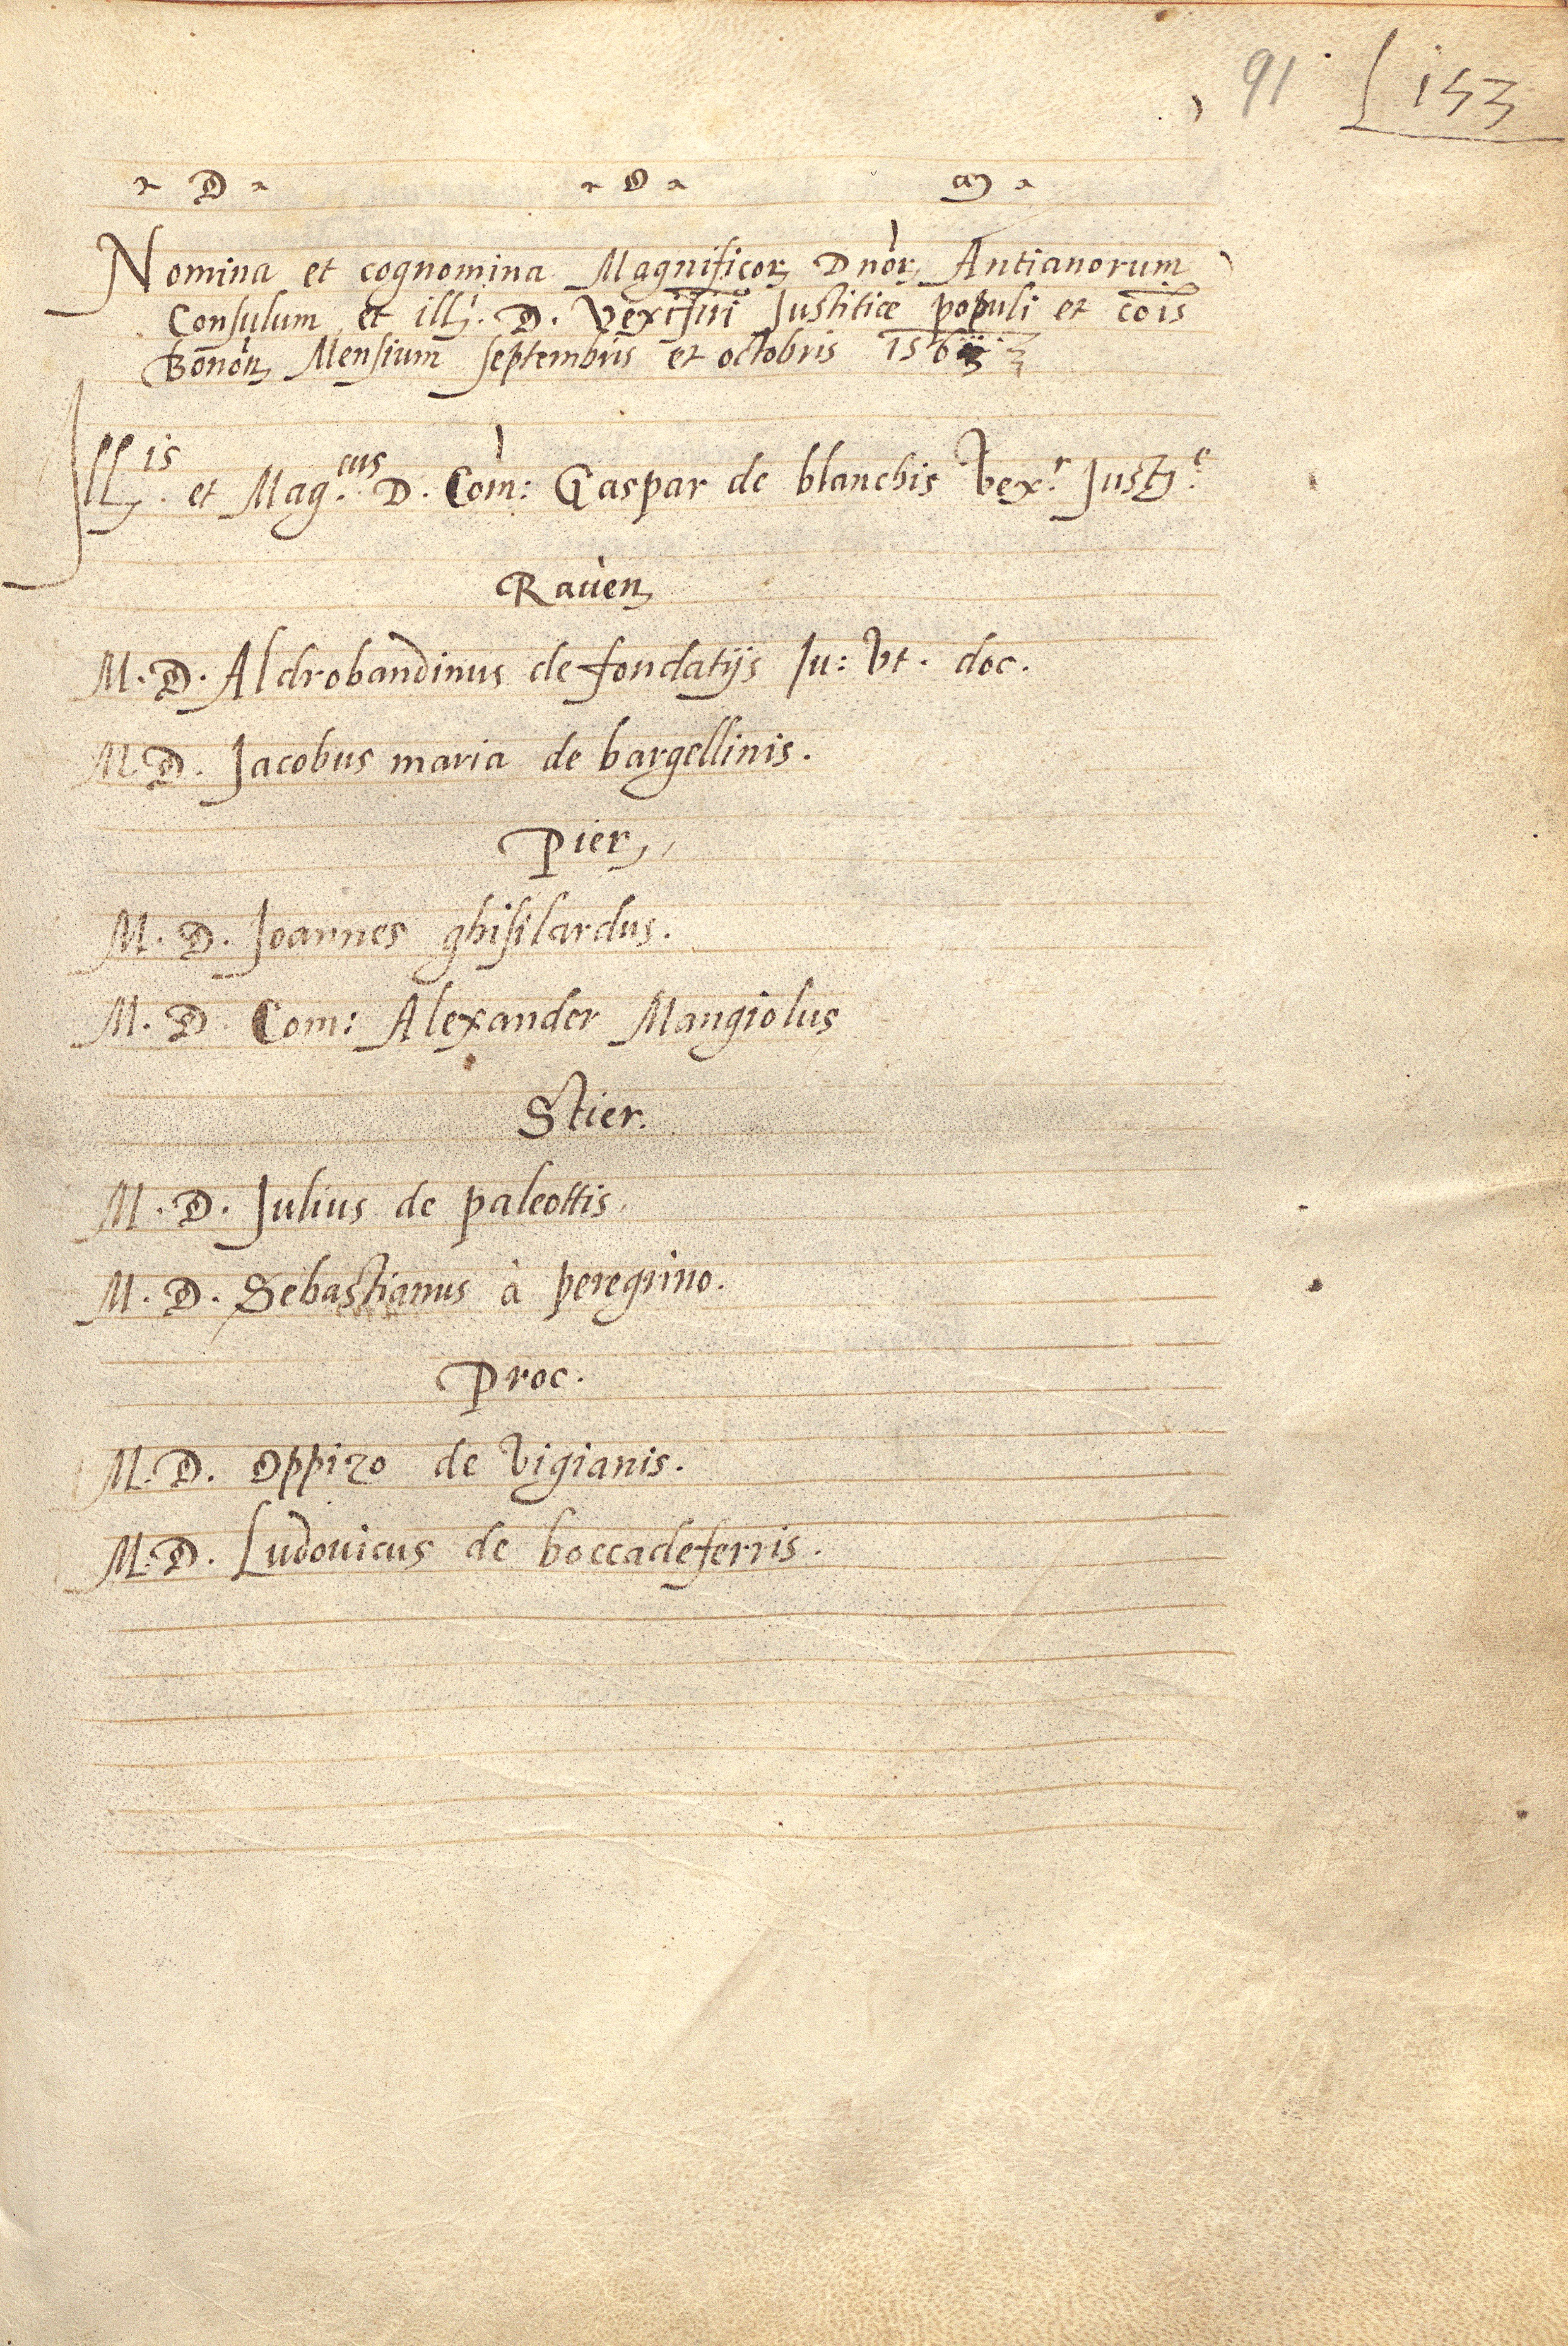 91 153
D. O. M.
Nomina et cognomina Magnificoꝝ Dnoꝝ Antianorum
Consulum et illꝫ. D. Vexifiri Justitiæ populi et cois
Bonon Mensium septembris et octobris
Illis. et Mag.cus D. Com: Gaspar de blanchis Vex.r Just.e
Raven
M. D. Aldrobandinus de fondatijs Ju: Vt. doc.
M. D. Jacobus maria de bargellinis.
Pier
M. D. Joannes ghisilardus.
M. D. Com: Alexander Mangiolus
Stier.
M. D. Julius de paleottis.
M. D. Sebastianus à peregrino.
Proc.
M. D. Oppizo de Vigianis.
M. D. Ludovicus de boccadeferris.